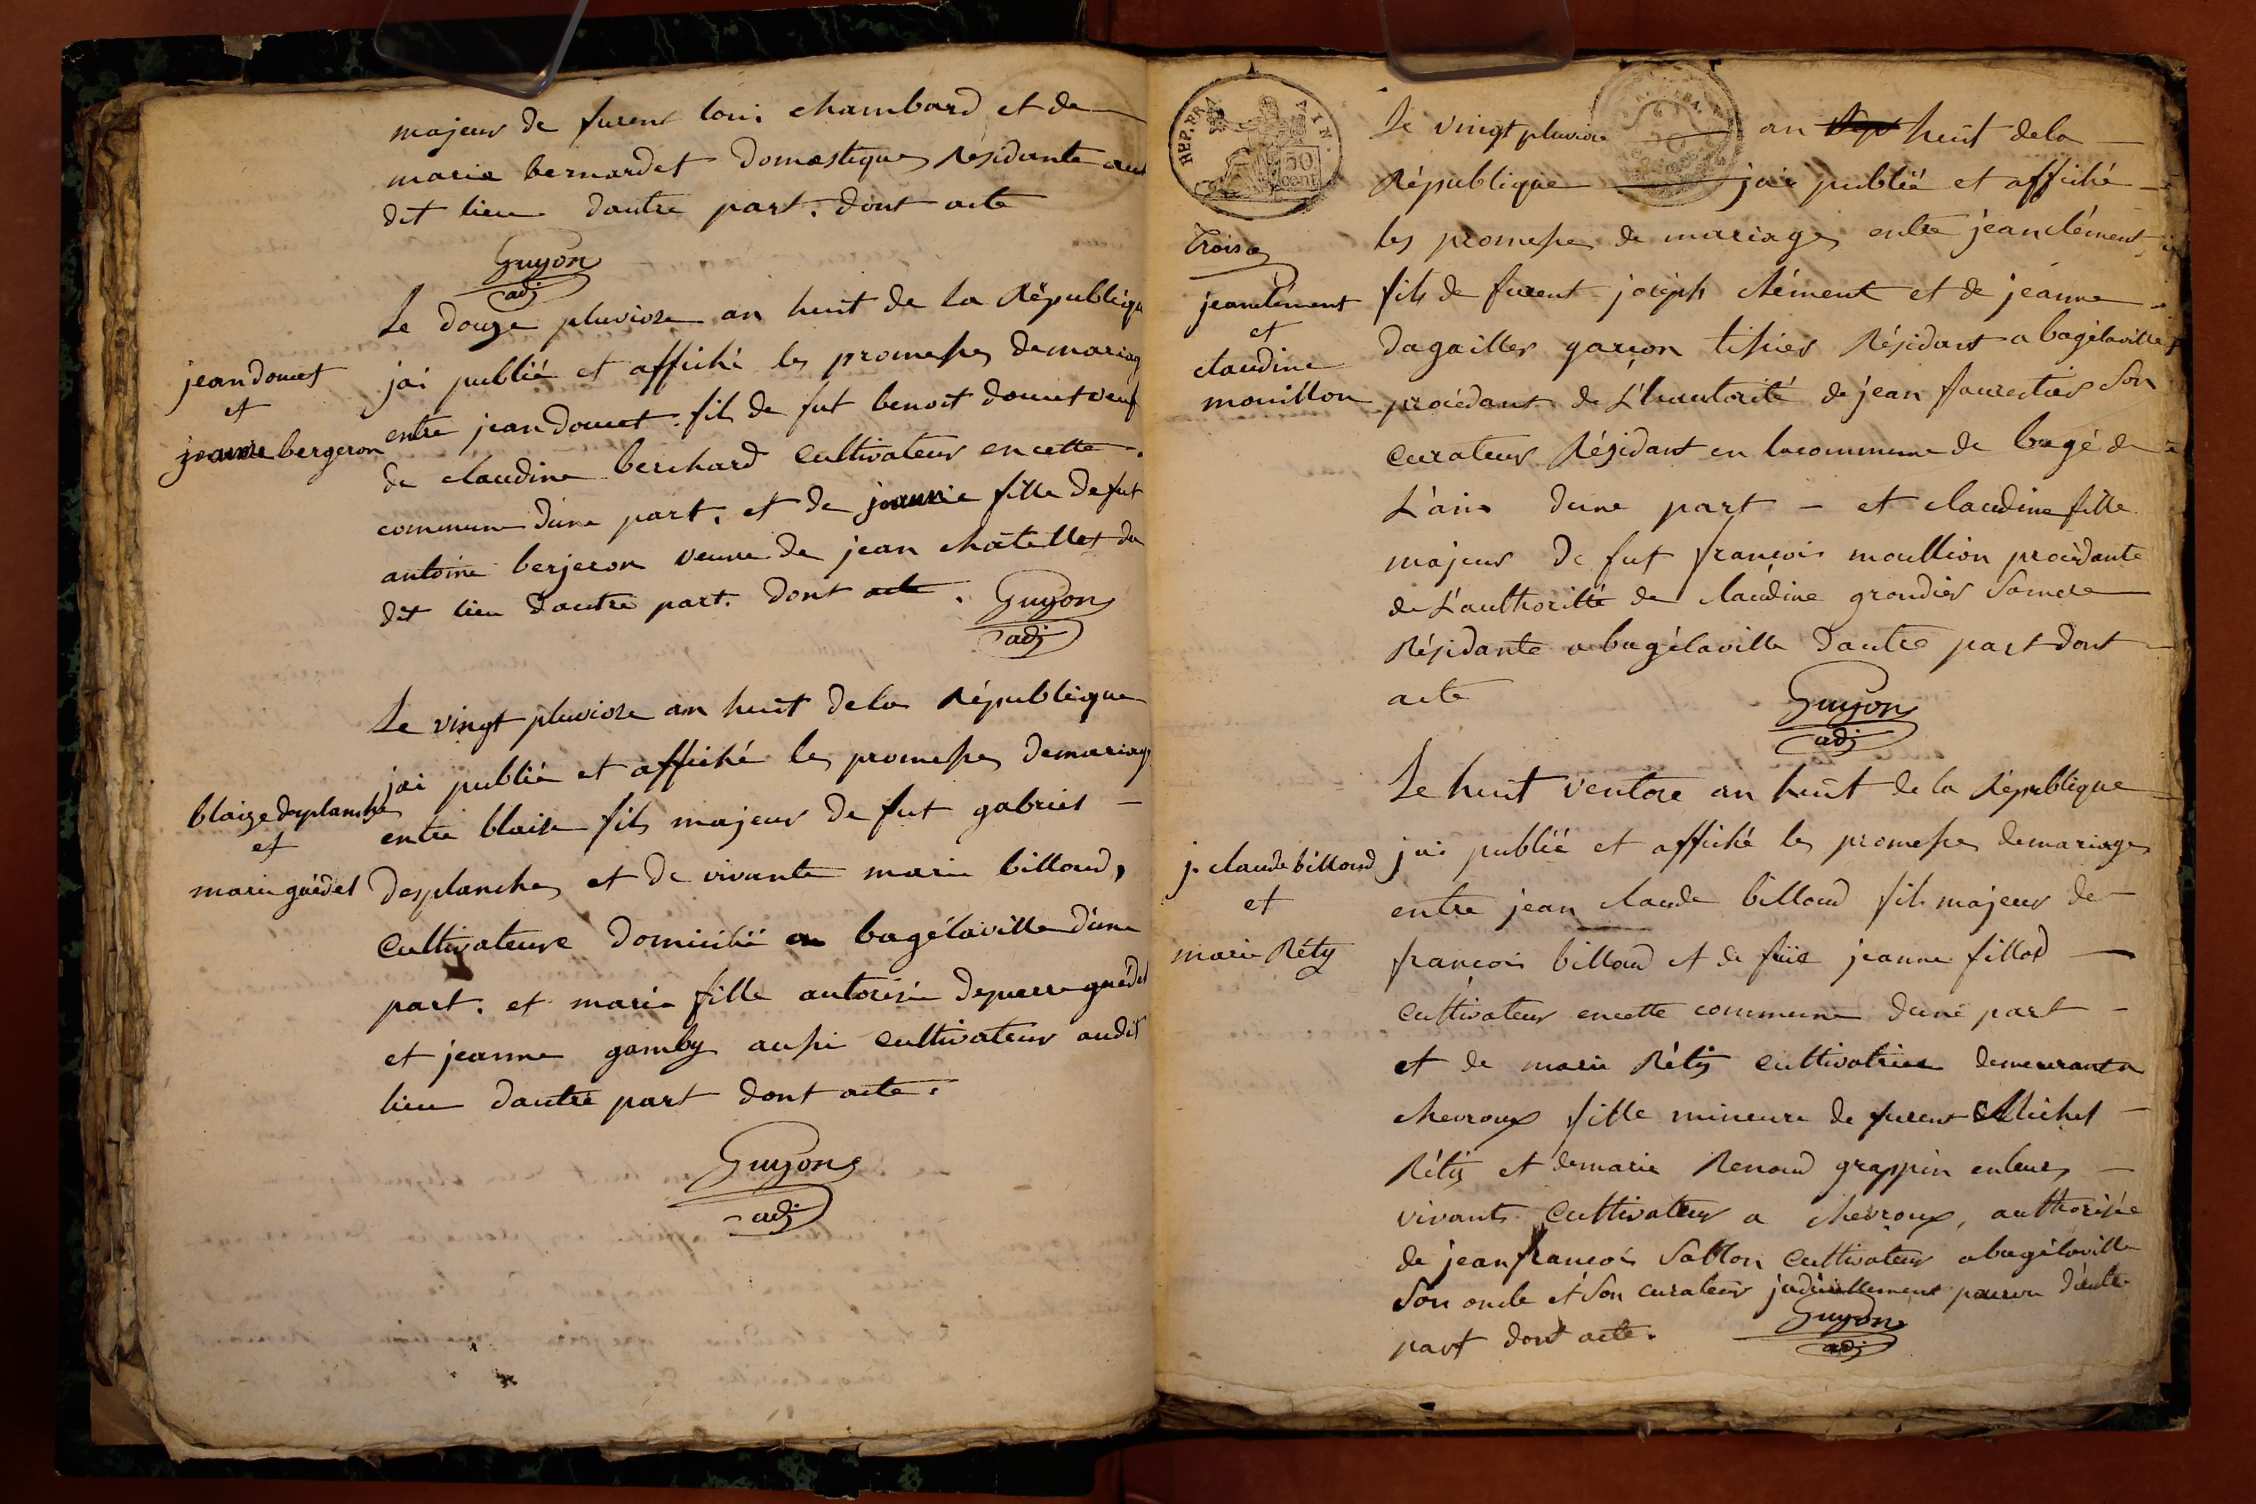 majeur de furent loui chambard et de
marie bernardet domestique Résidante au
dit lieu dautre part. dont acte
Guyon
adj
Le douze pluviose an huit de la Républiq
jean doucet
et
jeanne bergeron
jai publié et affiché les promesses demariag
entre jean doucet fils de fut benoit doucet veuf
de claudine berchard cultivateur encette
commune dune part. et de jeanne fille defut
antoine berjeron veuve de jean châtellet du
dit lieu dautre part. dont acte. Guyon
adj
Le vingt pluviose an huit dela République
jai publié et affiché les promesses demariag
blaize desplanche
et
marie guédet
entre blaise fils majeur de fut gabriel
desplanches et de vivante marie billoud,
Cultivateure domicilié a bagélaville dune
part. et marie fille autorisée depierre guédet
et jeanne gamby aussi cultivateur audit
lieu dautre part dont acte.
Guyon
adj
REP. FRA
AIN.
50
cent
Le vingt pluviose an huit dela
République jai publié et affiché
Trois
jean clément
et
claudine
mouillon
les promesses de mariages entre jean clément
fils de furent joseph clément et de jeanne
dagailler garçon tissier Résidant a bagélaville
procédant de L'hautorité de jean faurestier Son
curateur Résidant en lacommune de bagé de
L'ain dune part - et claudine fille
majeur de fut françois moullion procédante
de L'authoritté de claudine grondier Samere
Résidante a bagélaville dautre part dont
acte
Guyon
adj
Le huit ventose an huit de la République
j. claude billoud
et
marie Réty
jai publié et affiché les promesses demariages
entre jean claude billoud fils majeur de
françois billoud et de füe jeanne fillod
cultivateur encette commune dune part
et de marie Rétÿ cultivatrice demeurant a
chevroux fille mineure de furent Michel
Rétÿ et demarie Renoud grappin enleurs
vivants Cultivateur a chevroux, authorisée
de jean françois Sablon cultivateur a bagélaville
Son oncle et Son curateur judiciellement pourvu dautre
part dont acte.
Guyon
adj